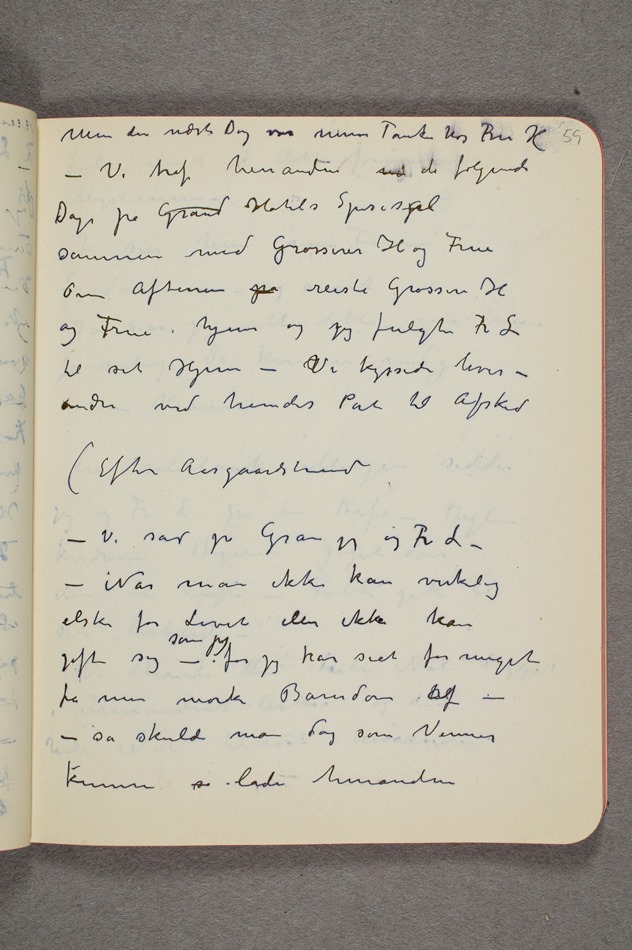 Men den næste Dag var mine Tanke hos Fru K 59
– Vi traf hinanden de følgende
Dage på Grand Hotels Spisesal
sammen med Grosserer H og Frue
Om Aftenen reiste Grosserer H
og Frue hjem og jeg fulgte Fr L
til sit Hjem – Vi kyssede hver-
andre ved hendes Port til Afsked
(Efter Aasgaardstrand
– Vi sad på Gran jeg og Fr L –
– Når man ikke kan virkelig
elske for Livet eller ikke kan
som jeg
gifte sig – for jeg har seet for meget
fra min mørke Barndom af –
– så skulde man dog som Venner
kunne lade hinanden